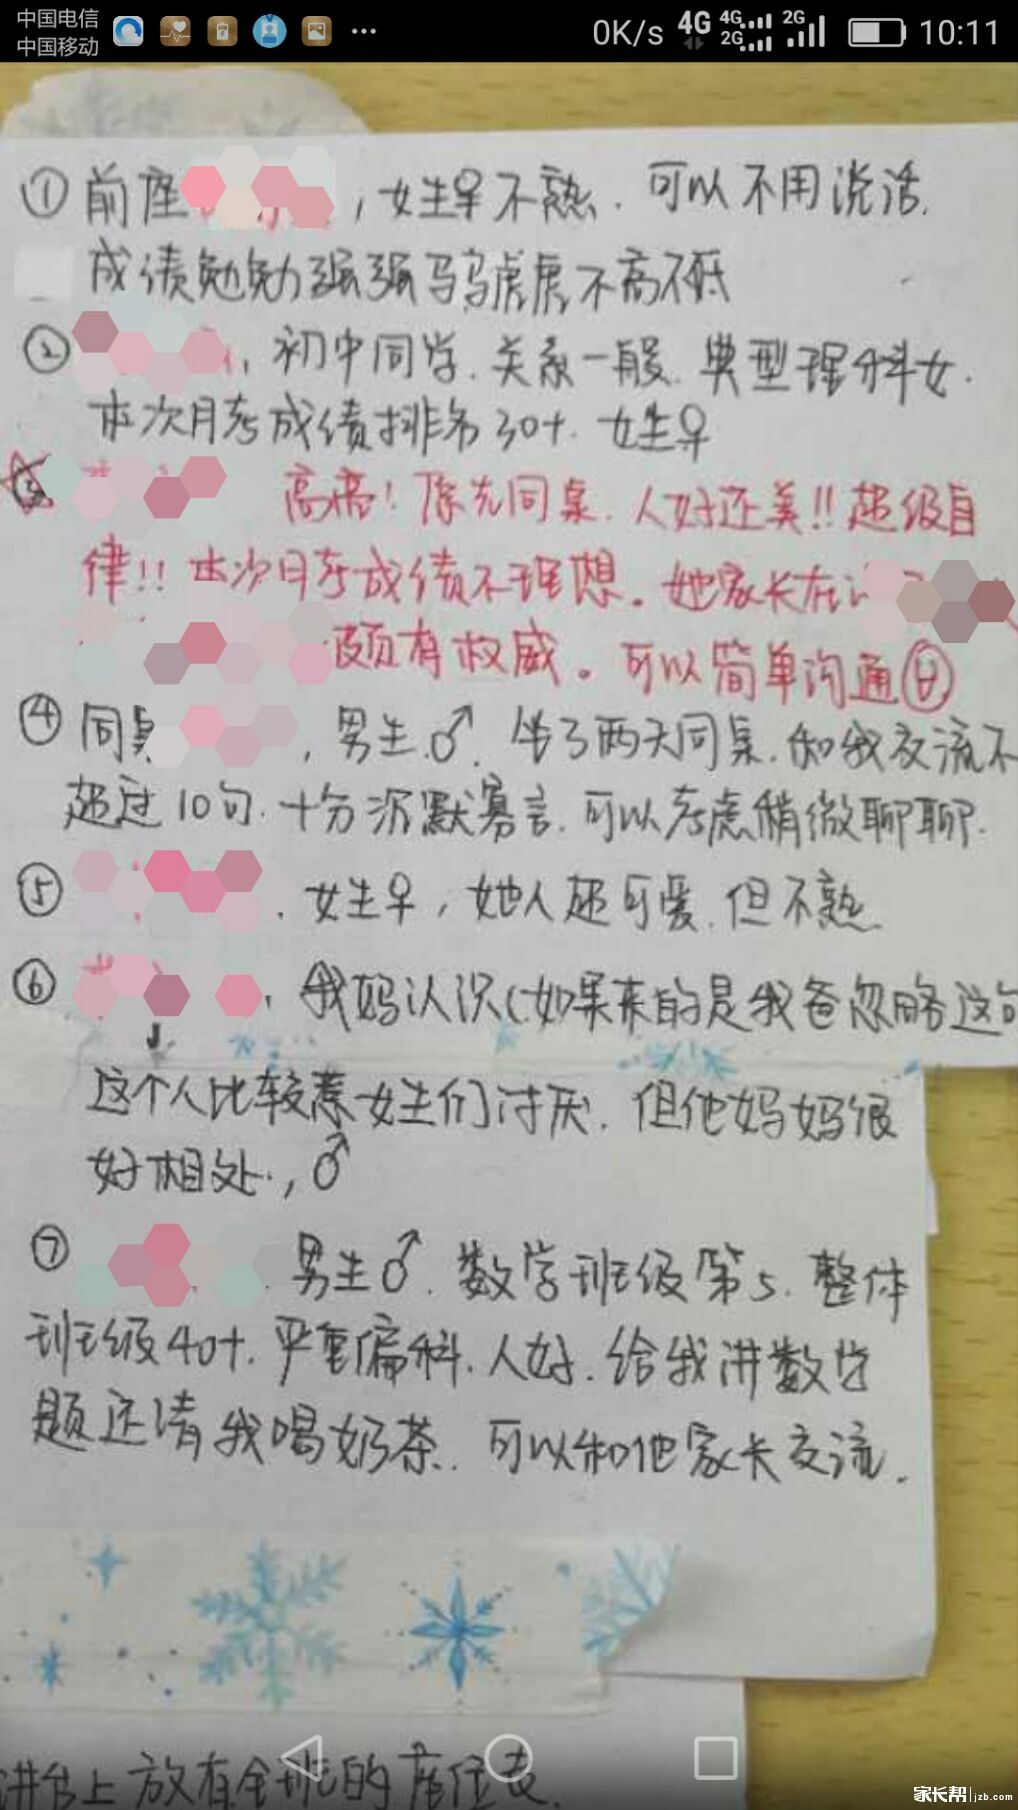 中国电信
中国移动
0K/s 4G 4G 2G 2G 10:11
① 前座 ,女生♀不熟.可以不用说话.
成绩勉勉强强马马虎虎不高不低
② ,初中同学.关系一般.典型理科女.
本次月考成绩排名30+.女生♀
高亮!原先同桌.人好还美!!超级自
律!!本次月考成绩不理想。她家长在
颇有权威。可以简单沟通
④ 同桌 ,男生♂.坐了两天同桌.和我交流不
超过10句.十分沉默寡言.可以考虑稍微聊聊.
⑤ .女生♀,她人超可爱.但不熟.
⑥ .我妈认识(如果来的是我爸忽略这句
这个人比较惹女生们讨厌.但他妈妈很
好相处.,♂
⑦ 男生♂.数学班级第5.整体
班级40+.严重偏科.人好.给我讲数学
题还请我喝奶茶.可以和他家长交流.
讲台上放有全班的座位表.
家长帮|jzb.com